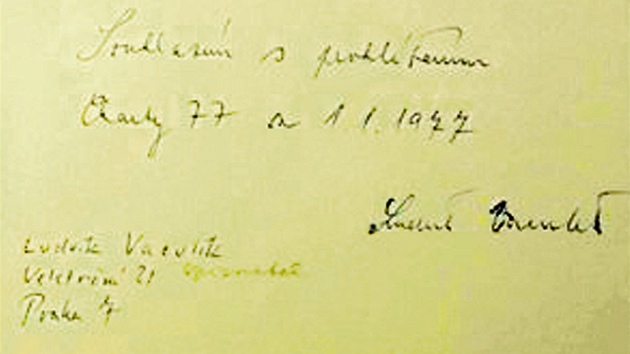 Souhlasím s prohlášením
Charty 77 z 1.1.1977
Ludvík Vaculík
Veletržní 21
Praha 7